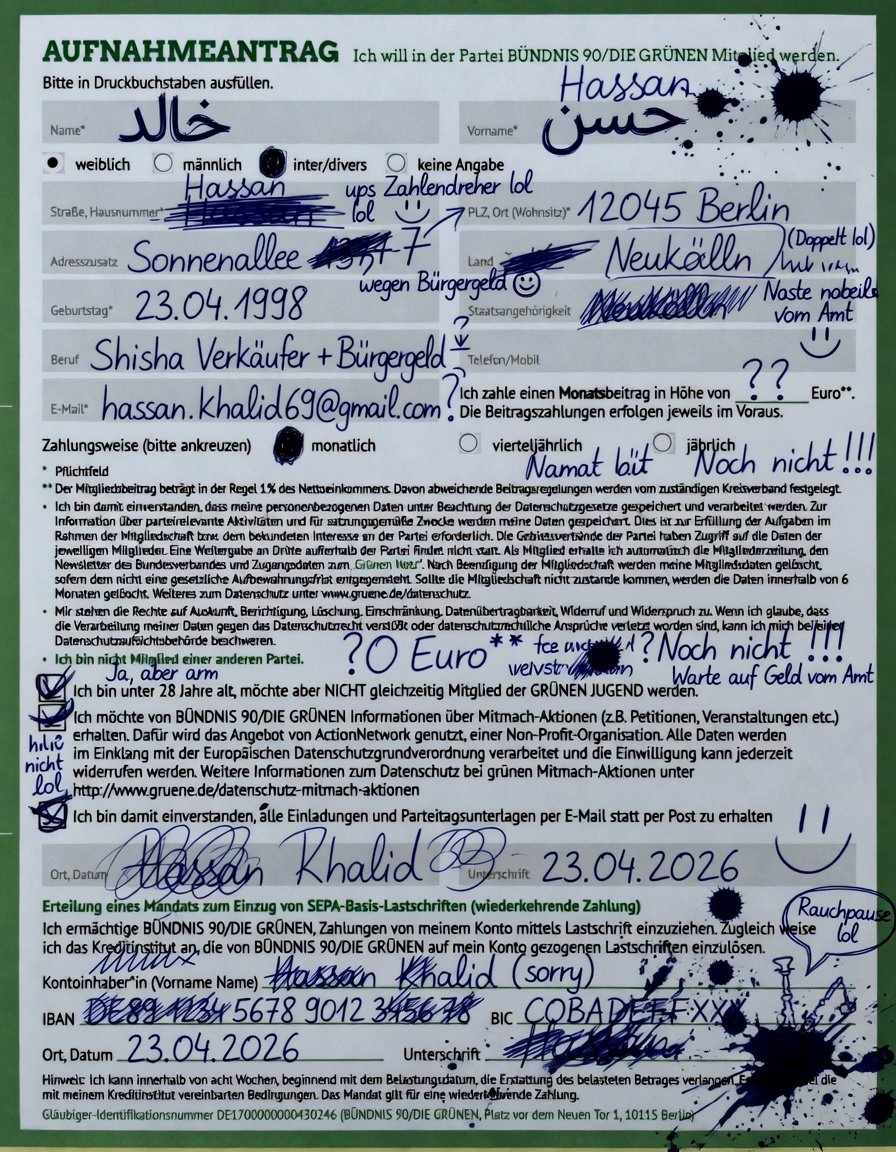 AUFNAHMEANTRAG Ich will in der Partei BÜNDNIS 90/DIE GRÜNEN Mitglied werden.
Bitte in Druckbuchstaben ausfüllen.
Hassan
Name* خالد
Vorname* حسن
weiblich männlich inter/divers keine Angabe
Hassan ups Zahlendreher lol
Straße, Hausnummer* lol
PLZ, Ort (Wohnsitz)* 12045 Berlin
Adresszusatz Sonnenallee 7
Land Neukälln (Doppelt lol)
wegen Bürgergeld
Geburtstag* 23.04.1998
Staatsangehörigkeit Naste nobeils
vom Amt
Beruf Shisha Verkäufer + Bürgergeld ?
Telefon/Mobil
E-Mail* hassan.khalid69@gmail.com ?
Ich zahle einen Monatsbeitrag in Höhe von ?? Euro**.
Die Beitragszahlungen erfolgen jeweils im Voraus.
Zahlungsweise (bitte ankreuzen) monatlich vierteljährlich jährlich
Namat läit Noch nicht !!!
* Pflichtfeld
** Der Mitgliedsbeitrag beträgt in der Regel 1% des Nettoeinkommens. Davon abweichende Beitragsregelungen werden vom zuständigen Kreisverband festgelegt.
• Ich bin damit einverstanden, dass meine personenbezogenen Daten unter Beachtung der Datenschutzgesetze gespeichert und verarbeitet werden. Zur
Information über parteirelevante Aktivitäten und für satzungsgemäße Zwecke werden meine Daten gespeichert. Dies ist zur Erfüllung der Aufgaben im
Rahmen der Mitgliedschaft bzw. dem bekundeten Interesse an der Partei erforderlich. Die Gebietsverbände der Partei haben Zugriff auf die Daten der
jeweiligen Mitglieder. Eine Weitergabe an Dritte außerhalb der Partei findet nicht statt. Als Mitglied erhalte ich automatisch die Mitgliederzeitung, den
Newsletter des Bundesverbandes und Zugangsdaten zum „Grünen Netz“. Nach Beendigung der Mitgliedschaft werden meine Mitgliedsdaten gelöscht,
sofern dem nicht eine gesetzliche Aufbewahrungsfrist entgegensteht. Sollte die Mitgliedschaft nicht zustande kommen, werden die Daten innerhalb von 6
Monaten gelöscht. Weiteres zum Datenschutz unter www.gruene.de/datenschutz.
• Mir stehen die Rechte auf Auskunft, Berichtigung, Löschung, Einschränkung, Datenübertragbarkeit, Widerruf und Widerspruch zu. Wenn ich glaube, dass
die Verarbeitung meiner Daten gegen das Datenschutzrecht verstößt oder datenschutzrechtliche Ansprüche verletzt worden sind, kann ich mich bei einer
Datenschutzaufsichtsbehörde beschweren.
• Ich bin nicht Mitglied einer anderen Partei.
?0 Euro** ? Noch nicht !!!
Ja, aber arm
Warte auf Geld vom Amt
Ich bin unter 28 Jahre alt, möchte aber NICHT gleichzeitig Mitglied der GRÜNEN JUGEND werden.
Ich möchte von BÜNDNIS 90/DIE GRÜNEN Informationen über Mitmach-Aktionen (z.B. Petitionen, Veranstaltungen etc.)
erhalten. Dafür wird das Angebot von ActionNetwork genutzt, einer Non-Profit-Organisation. Alle Daten werden
im Einklang mit der Europäischen Datenschutzgrundverordnung verarbeitet und die Einwilligung kann jederzeit
widerrufen werden. Weitere Informationen zum Datenschutz bei grünen Mitmach-Aktionen unter
http://www.gruene.de/datenschutz-mitmach-aktionen
nicht
lol
Ich bin damit einverstanden, alle Einladungen und Parteitagsunterlagen per E-Mail statt per Post zu erhalten
Ort, Datum Hassan Khalid
Unterschrift 23.04.2026
Erteilung eines Mandats zum Einzug von SEPA-Basis-Lastschriften (wiederkehrende Zahlung)
Ich ermächtige BÜNDNIS 90/DIE GRÜNEN, Zahlungen von meinem Konto mittels Lastschrift einzuziehen. Zugleich weise
ich das Kreditinstitut an, die von BÜNDNIS 90/DIE GRÜNEN auf mein Konto gezogenen Lastschriften einzulösen.
Rauchpause
lol
Kontoinhaber*in (Vorname Name) Hassan Khalid (sorry)
IBAN DE89 1234 5678 9012 3456 78 BIC COBADEFFXXX
Ort, Datum 23.04.2026 Unterschrift
Hinweis: Ich kann innerhalb von acht Wochen, beginnend mit dem Belastungsdatum, die Erstattung des belasteten Betrages verlangen. die
mit meinem Kreditinstitut vereinbarten Bedingungen. Das Mandat gilt für eine wiederkehrende Zahlung.
Gläubiger-Identifikationsnummer DE1700000000430246 (BÜNDNIS 90/DIE GRÜNEN, Platz vor dem Neuen Tor 1, 10115 Berlin)